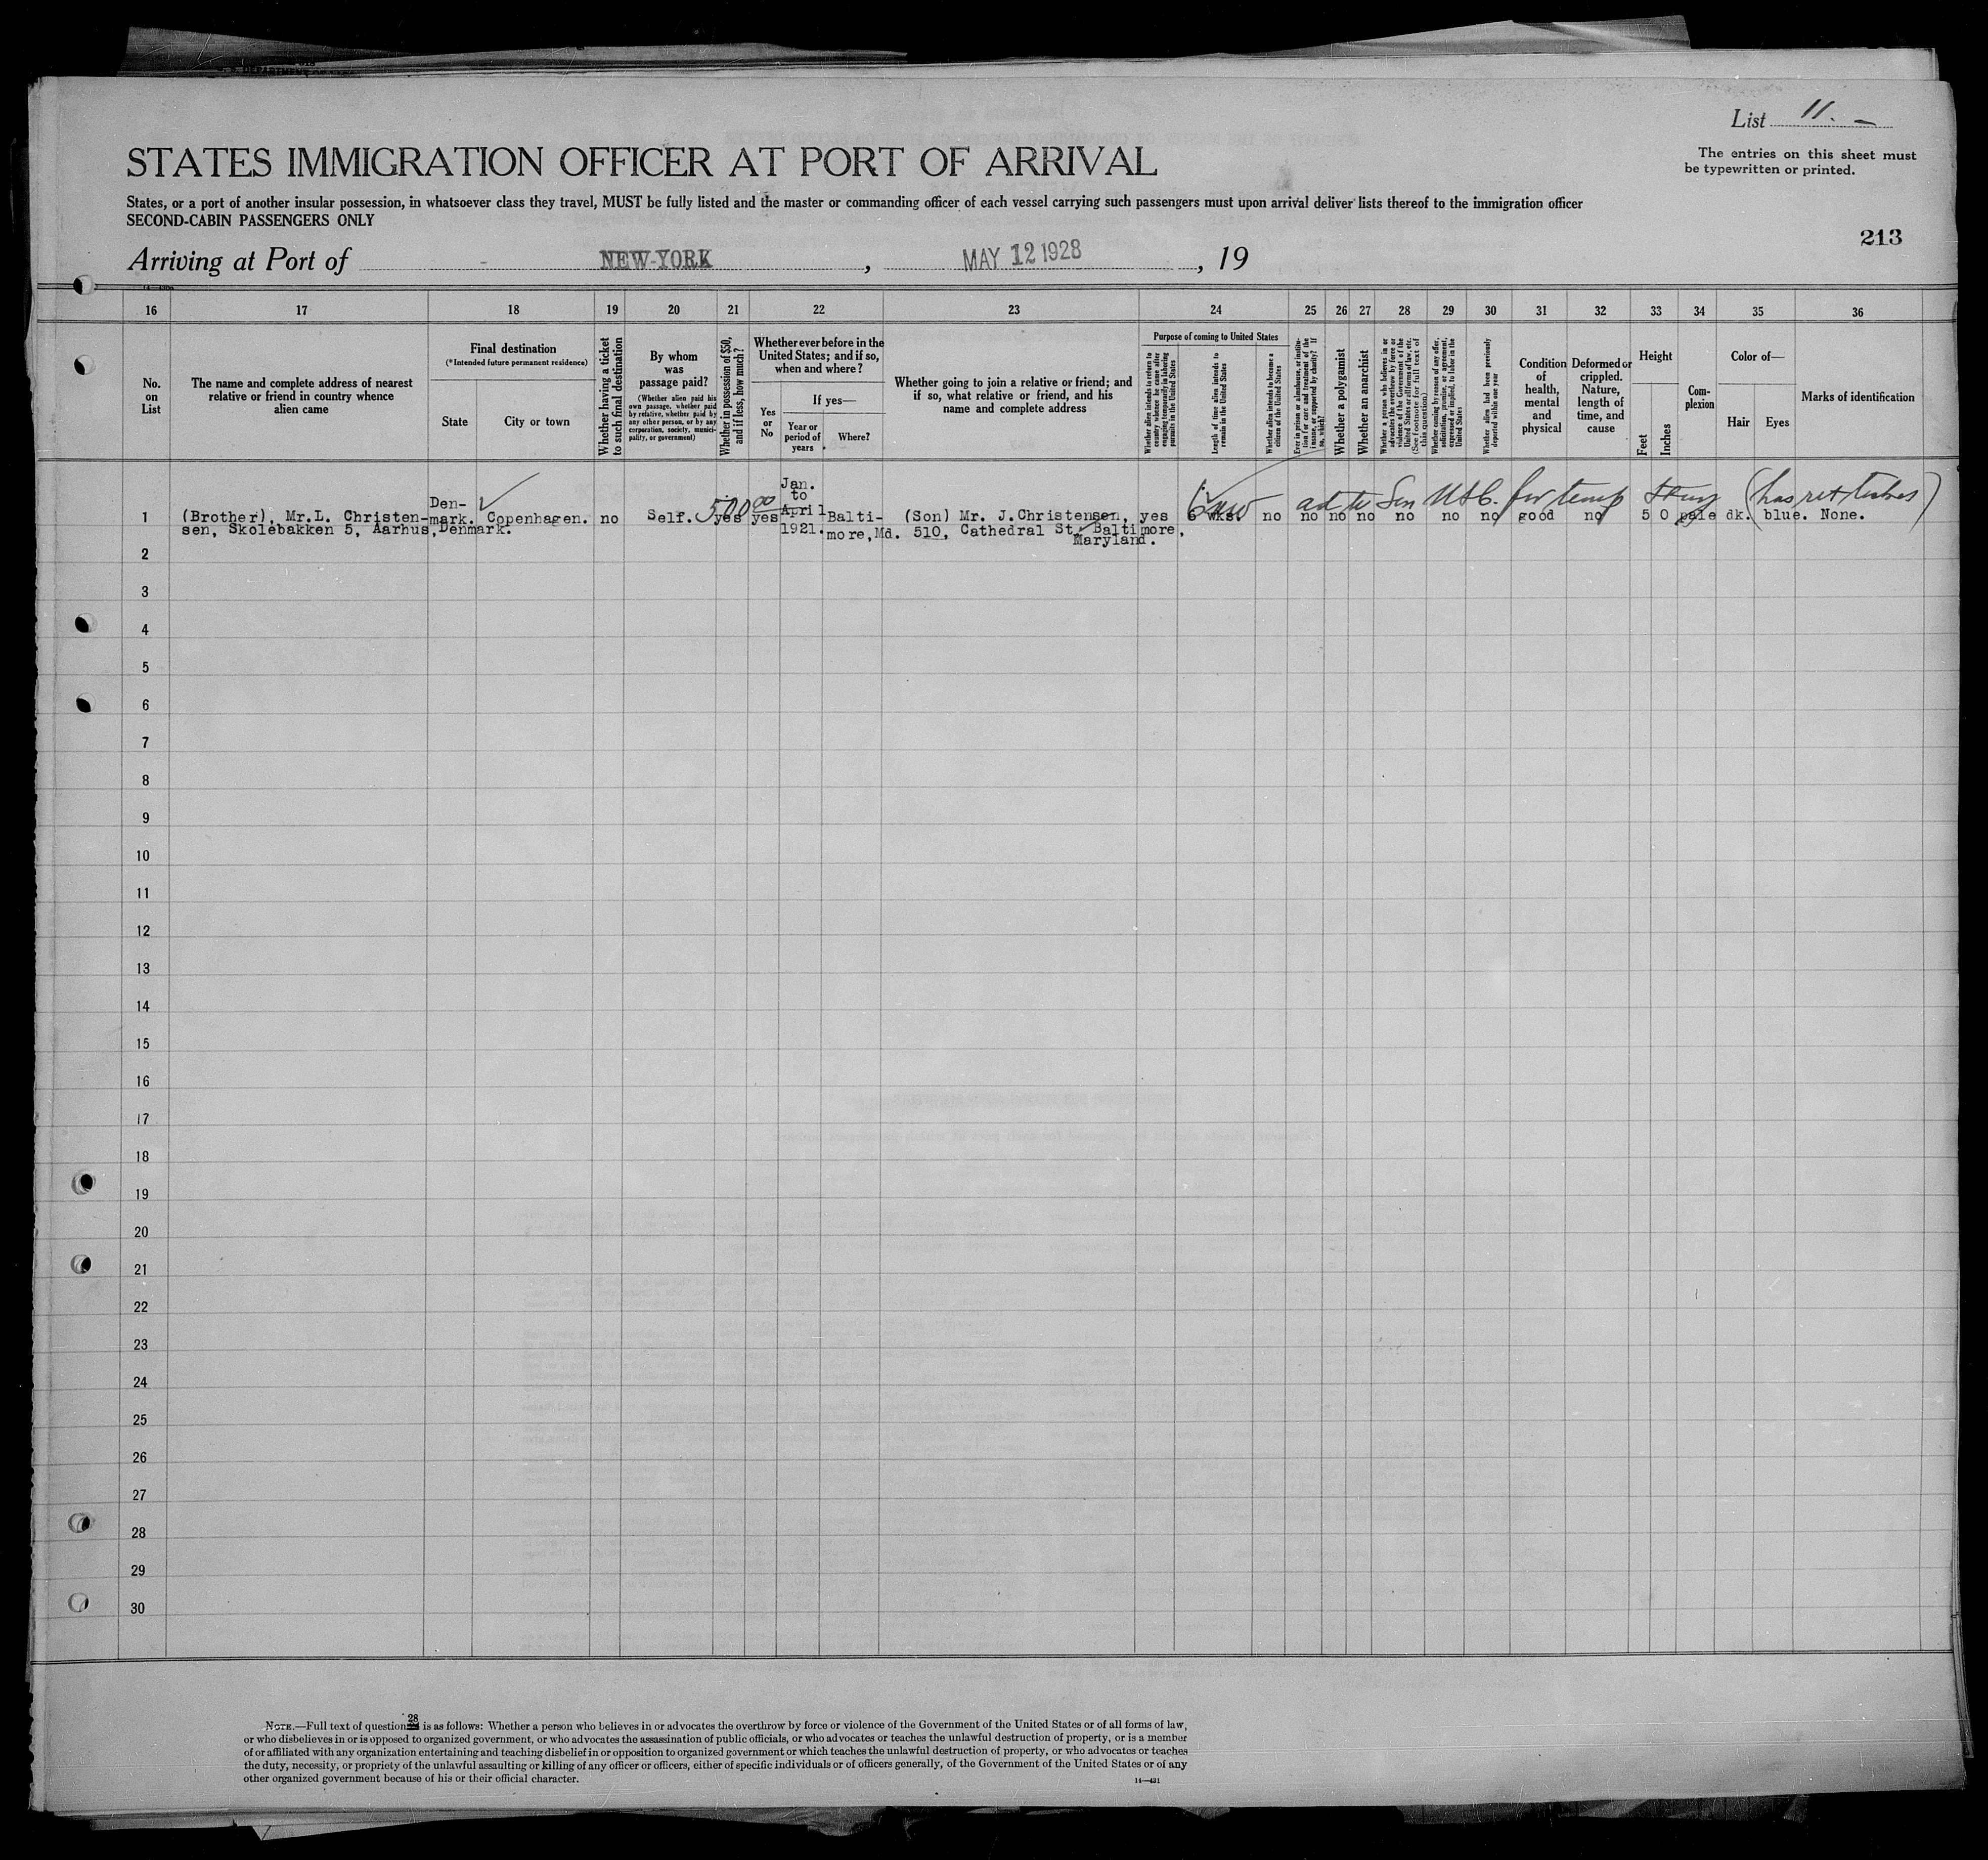 List 11. -
The entries on this sheet must
be typewritten or printed.
STATES IMMIGRATION OFFICER AT PORT OF ARRIVAL
States, or a port of another insular possession, in whatsoever class they travel, MUST be fully listed and the master or commanding officer of each vessel carrying such passengers must upon arrival deliver lists thereof to the immigration officer
SECOND-CABIN PASSENGERS ONLY
213
Arriving at Port of NEW-YORK, MAY 12 1928, 19
16 17 18 19 20 21 22 23 24 25 26 27 28 29 30 31 32 33 34 35 36
No.
on
List
The name and complete address of nearest
relative or friend in country whence
alien came
Final destination
(*Intended future permanent residence)
State
City or town
Whether having a ticket
to such final destination
By whom
was
passage paid?
(Whether alien paid his
own passage, whether paid
by relative, whether paid by
any other person, or by any
corporation, society, munici-
pality, or government)
Whether in possession of $50,
and if less, how much?
Whether ever before in the
United States; and if so,
when and where?
Yes
or
No
If yes—
Year or
period of
years
Where?
Whether going to join a relative or friend; and
if so, what relative or friend, and his
name and complete address
Purpose of coming to United States
Whether alien intends to return to
country whence he came after
engaging temporarily in laboring
pursuits in the United States
Length of time alien intends to
remain in the United States
Whether alien intends to become a
citizen of the United States
Ever in prison or almshouse, or institu-
tion for care and treatment of the
insane, or supported by charity? If
so, which?
Whether a polygamist
Whether an anarchist
Whether a person who believes in or
advocates the overthrow by force or
violence of the Government of the
United States or all forms of law, etc.
(See footnote for full text of
this question.)
Whether coming by reason of any offer,
solicitation, promise, or agreement,
expressed or implied, to labor in the
United States
Whether alien had been previously
deported within one year
Condition
of
health,
mental
and
physical
Deformed or
crippled.
Nature,
length of
time, and
cause
Height
Feet
Inches
Com-
plexion
Color of—
Hair
Eyes
Marks of identification
Jan.
to
Den-
500 00 April
6 for temp (has ret tickets)
1 (Brother), Mr.L. Christen- mark. Copenhagen. no Self. yes yes Balti- (Son) Mr. J.Christensen, yes 6 wks. no no no no no no no good no 5 0 pale dk. blue. None.
sen, Skolebakken 5, Aarhus, Denmark. 1921. more, Md. 510, Cathedral St, Baltimore,
Maryland.
2
3
4
5
6
7
8
9
10
11
12
13
14
15
16
17
18
19
20
21
22
23
24
25
26
27
28
29
30
28
NOTE.—Full text of question is as follows: Whether a person who believes in or advocates the overthrow by force or violence of the Government of the United States or of all forms of law,
or who disbelieves in or is opposed to organized government, or who advocates the assassination of public officials, or who advocates or teaches the unlawful destruction of property, or is a member
of or affiliated with any organization entertaining and teaching disbelief in or opposition to organized government or which teaches the unlawful destruction of property, or who advocates or teaches
the duty, necessity, or propriety of the unlawful assaulting or killing of any officer or officers, either of specific individuals or of officers generally, of the Government of the United States or of any
other organized government because of his or their official character.
14—431